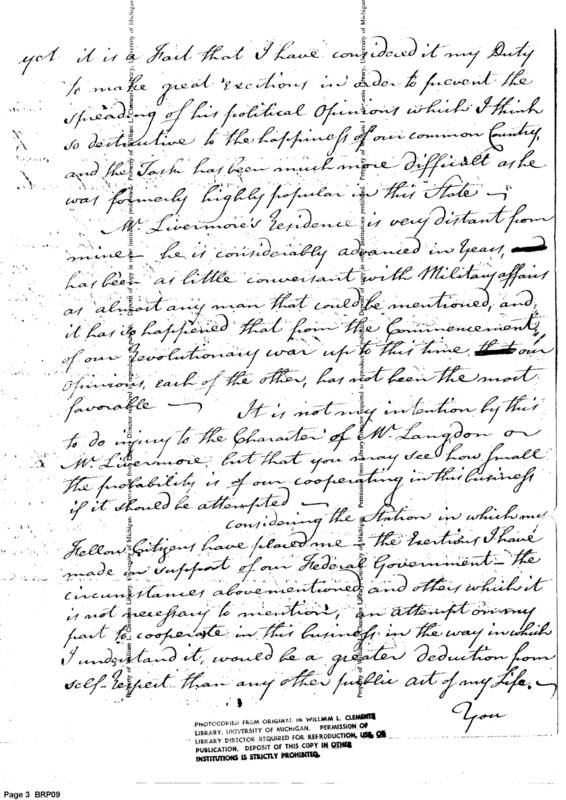 yet it is a Fact that I have considered it my Duty
to make great exertions in order to prevent the
spreading of his political Opinions which I think
so destructive to the happiness of our common Country
and the Task has been much more difficult as he
was formerly highly popular in this State —
Mr. Livermore's Residence is very distant from
mine — he is considerably advanced in Years,
has been as little conversant with Military affairs
as almost any man that could be mentioned, and
it has so happened that from the Commencement
of our Revolutionary war up to this time our
Opinions, each of the other, has not been the most
favorable — It is not my intention by this
to do injury to the Character of Mr. Langdon or
Mr. Livermore, but that you may see how small
the probability is of our cooperating in this business
if it should be attempted —
considering the Station in which my
Fellow Citizens have placed me — the Exertions I have
made in support of our Federal Government — the
circumstances abovementioned and others which it
is not necessary to mention, an attempt on my
part to cooperate in this business in the way in which
I understand it, would be a greater deduction from
self-respect than any other public act of my Life. —
You
PHOTOCOPIED FROM ORIGINAL IN WILLIAM L. CLEMENTS
LIBRARY, UNIVERSITY OF MICHIGAN. PERMISSION OF
LIBRARY DIRECTOR REQUIRED FOR REPRODUCTION, USE, OR
PUBLICATION. DEPOSIT OF THIS COPY IN OTHER
INSTITUTIONS IS STRICTLY PROHIBITED.
Page 3 BRP09